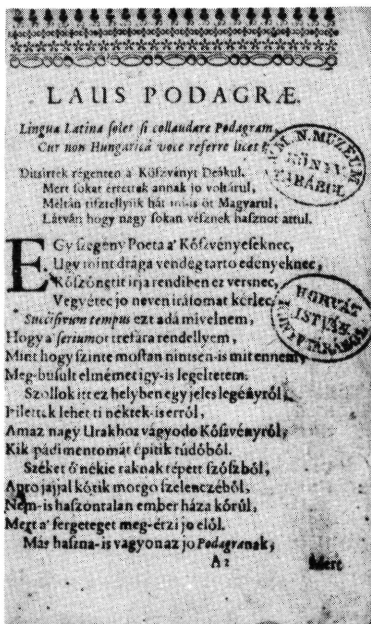 LAUS PODAGRÆ.
Lingua Latina solet si collaudare Podagram,
Cur non Hungaricâ voce referre licet?
Ditsirték régenten a' Kôszvényt Deákul,
Mert sokat értettek annak jo voltárul,
Méltán tisztellyük hát mi öt Magyarul,
Látván hogy nagy sokan vésznek hasznot attul.
EGy szegény Poeta a' Kôszvényeseknec,
Ugy mint drága vendég tarto edényeknec,
Kôszöntetit irja rendiben ez versnec,
Vegyétec jo neven irásomat kérlec,
Succisivum tempus ezt adá mivelnem,
Hogy a' seriumot tréfára rendellyem,
Mint hogy szinte mostan nintsen-is mit ennem,
Meg-búsult elmémet igy-is legeltetem.
Szollok itt ez helyben egy jeles legényrôl,
lehet ti néktek-is errôl,
Amaz nagy Urakhoz vágyodo Kôszvényrôl,
Kik pádimentomát épitik túdôból.
Széket ô nékie raknak tépett szôszbôl,
Apro jajjal kôtik morgo szelenczébôl,
Nem-is haszontalan ember háza kôrúl,
Mert a' fergeteget meg-érzi jo elôl.
Már haszna-is vagyon az jo Podagranak,
A 2 Mert
M. N. MUZEUM
KÖNYV
TARÁRUL
HORVÁT
ISTVÁN
KÖNYVTÁRÁBÓL